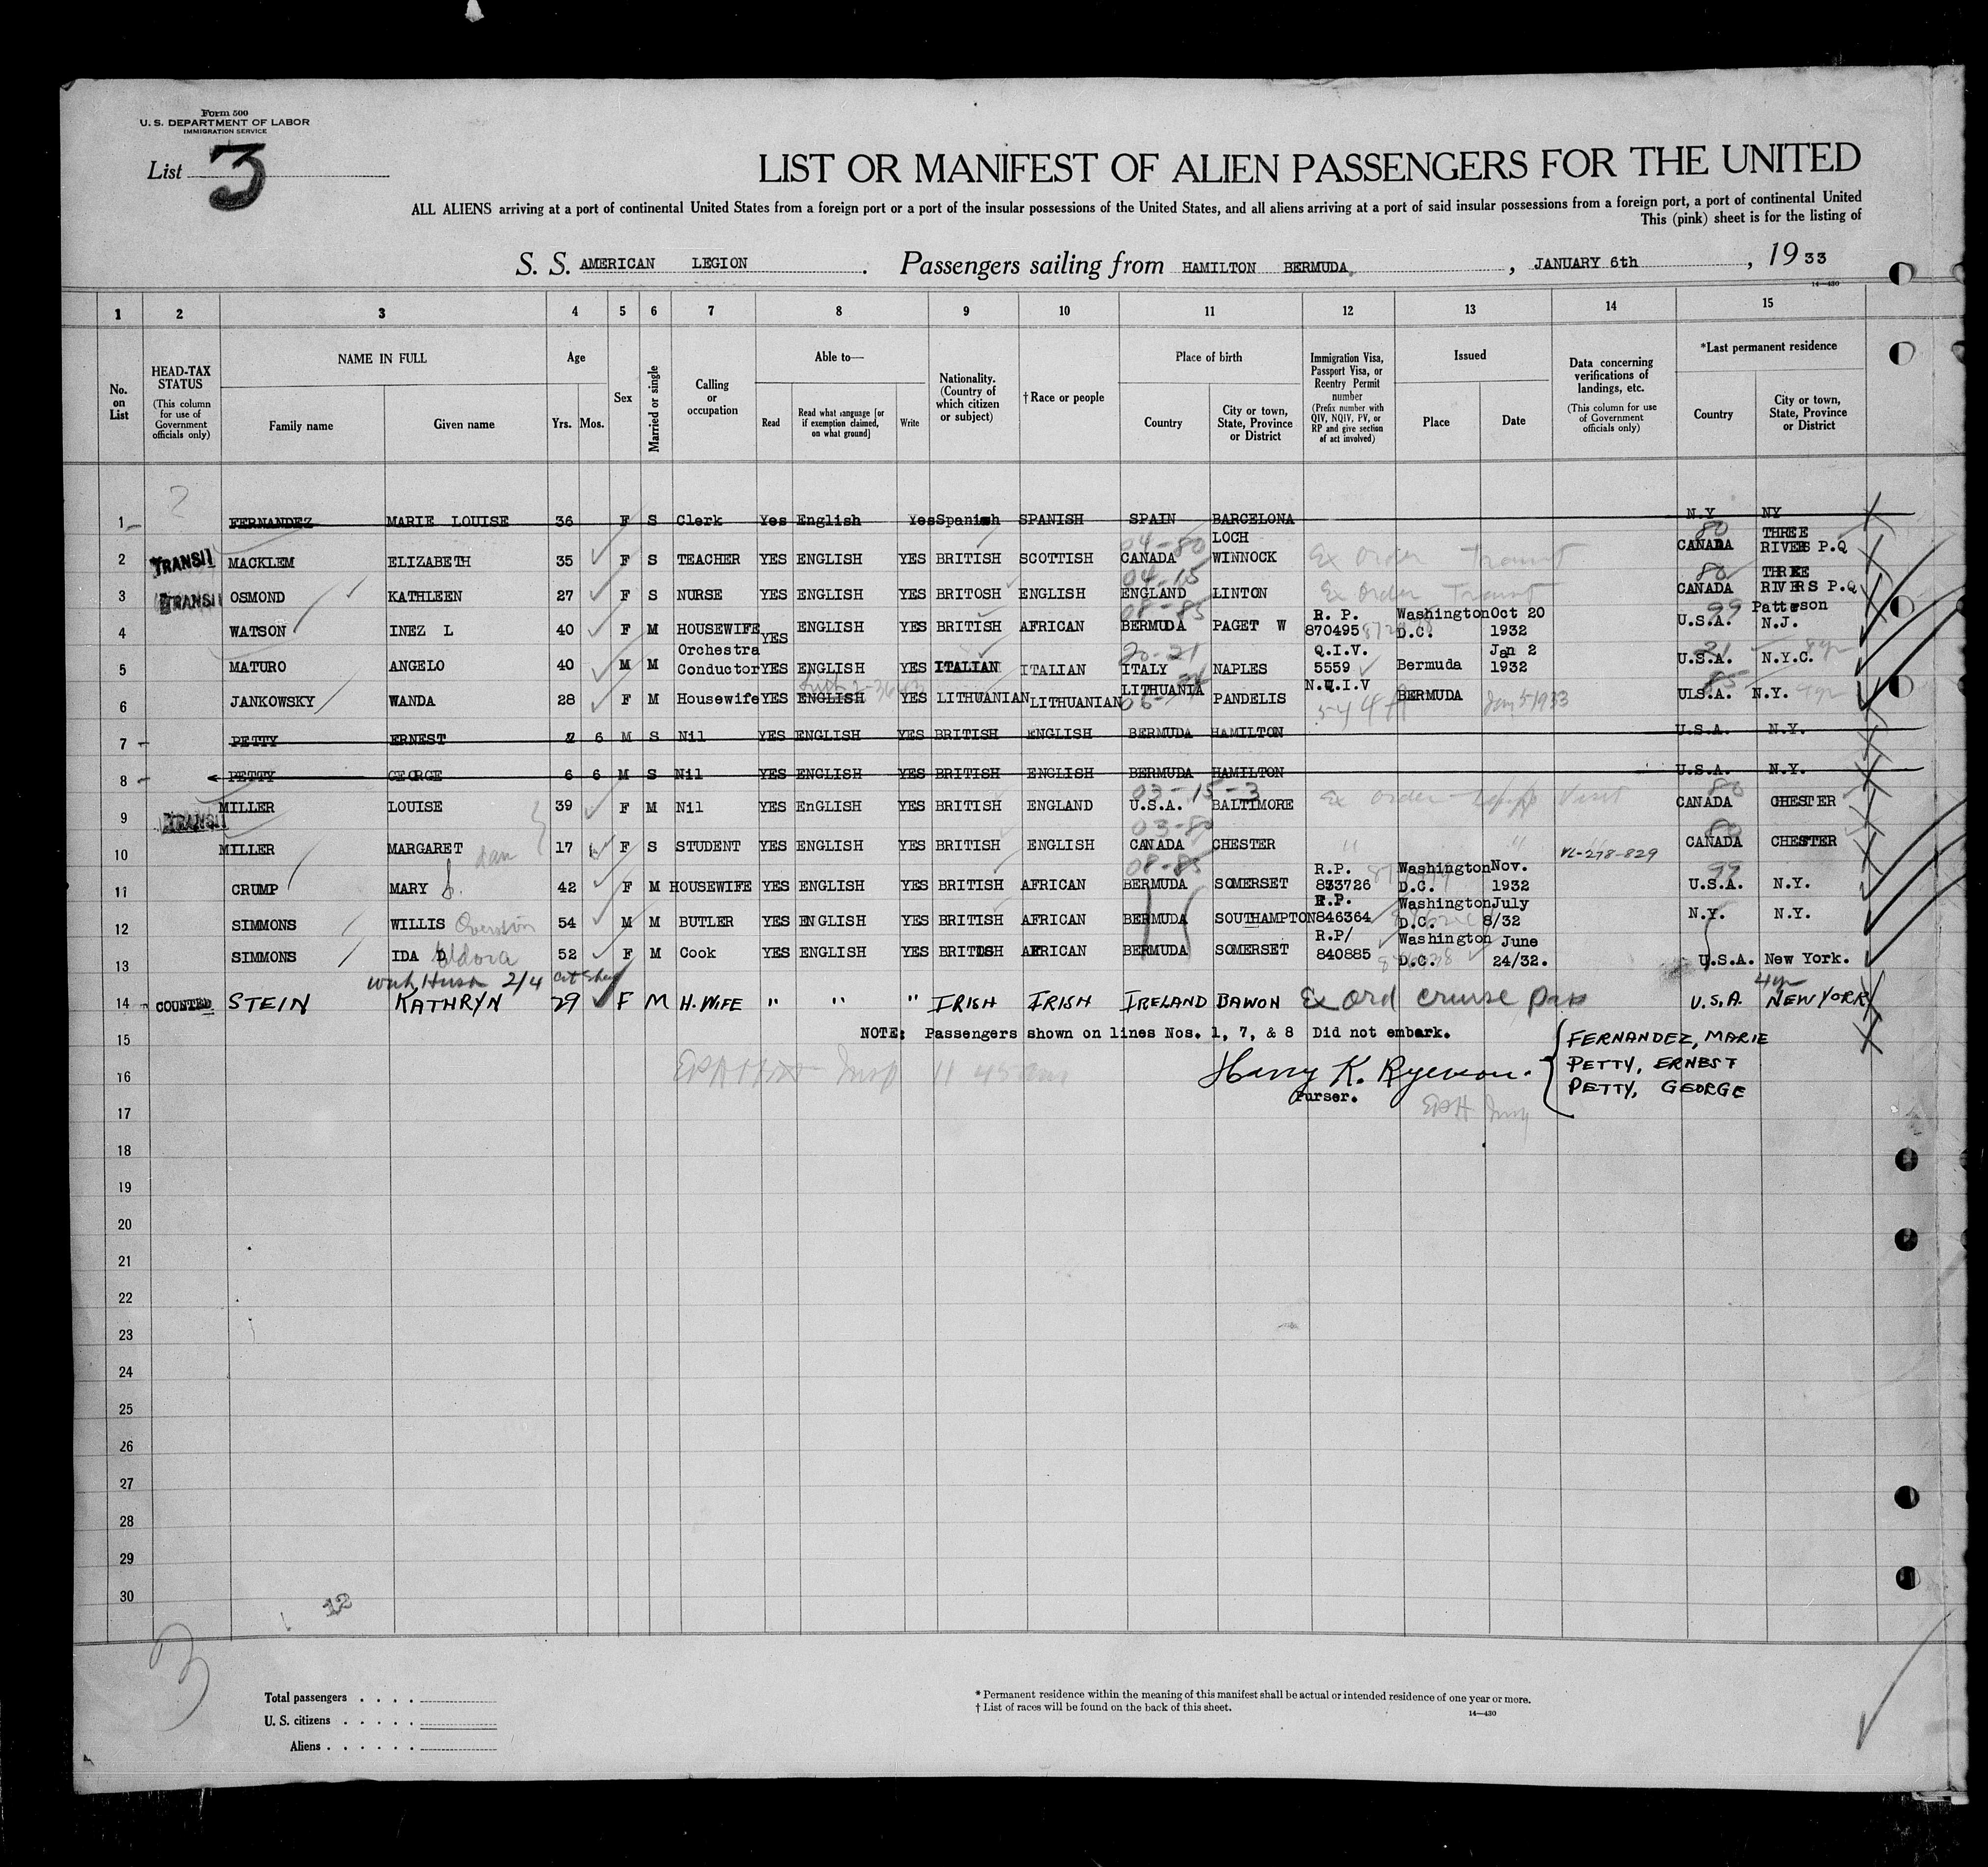 Form 500
U. S. DEPARTMENT OF LABOR
IMMIGRATION SERVICE
List 3
LIST OR MANIFEST OF ALIEN PASSENGERS FOR THE UNITED
ALL ALIENS arriving at a port of continental United States from a foreign port or a port of the insular possessions of the United States, and all aliens arriving at a port of said insular possessions from a foreign port, a port of continental United
This (pink) sheet is for the listing of
S. S. AMERICAN LEGION . Passengers sailing from HAMILTON BERMUDA , JANUARY 6th , 19 33
14—430
1 2 3 4 5 6 7 8 9 10 11 12 13 14 15
No. on List
HEAD-TAX STATUS (This column for use of Government officials only)
NAME IN FULL Family name Given name
Age Yrs. Mos.
Sex
Married or single
Calling or occupation
Able to— Read Read what language [or if exemption claimed, on what ground] Write
Nationality. (Country of which citizen or subject)
† Race or people
Place of birth Country City or town, State, Province or District
Immigration Visa, Passport Visa, or Reentry Permit number (Prefix number with QIV, NQIV, PV, or RP and give section of act involved)
Issued Place Date
Data concerning verifications of landings, etc. (This column for use of Government officials only)
*Last permanent residence Country City or town, State, Province or District
1 FERNANDEZ MARIE LOUISE 36 F S Clerk Yes English Yes Spanish SPANISH SPAIN BARCELONA N.Y NY
2 TRANSIT MACKLEM ELIZABETH 35 F S TEACHER YES ENGLISH YES BRITISH SCOTTISH 04-80 CANADA LOCH WINNOCK Ex Order Transit 80 CANADA THREE RIVERS P.Q
3 TRANSIT OSMOND KATHLEEN 27 F S NURSE YES ENGLISH YES BRITOSH ENGLISH 04-15 ENGLAND LINTON Ex Order Transit 80 CANADA THREE RIVERS P.Q
4 WATSON INEZ L 40 F M HOUSEWIFE YES ENGLISH YES BRITISH AFRICAN 08-85 BERMUDA PAGET W R. P. 870495 Washington D.C. Oct 20 1932 99 U.S.A. Patterson N.J.
5 MATURO ANGELO 40 M M Orchestra Conductor YES ENGLISH YES ITALIAN ITALIAN 20-21 ITALY NAPLES Q.I.V. 5559 Bermuda Jan 2 1932 21 U.S.A. N.Y.C.
6 JANKOWSKY WANDA 28 F M Housewife YES ENGLISH YES LITHUANIAN LITHUANIAN LITHUANIA PANDELIS N.Q.I.V BERMUDA Jan 5 1933 85 UIS.A. N.Y.
7 PETTY ERNEST 2 6 M S Nil YES ENGLISH YES BRITISH ENGLISH BERMUDA HAMILTON U.S.A. N.Y.
8 PETTY GEORGE 6 6 M S Nil YES ENGLISH YES BRITISH ENGLISH BERMUDA HAMILTON U.S.A. N.Y.
9 TRANSIT MILLER LOUISE 39 F M Nil YES EnGLISH YES BRITISH ENGLAND 03-15-3 U.S.A. BALTIMORE Ex Order Visit 80 CANADA CHESTER
10 MILLER MARGARET 17 F S STUDENT YES ENGLISH YES BRITISH ENGLISH 03-80 CANADA CHESTER " " VL-278-829 80 CANADA CHESTER
11 CRUMP MARY 42 F M HOUSEWIFE YES ENGLISH YES BRITISH AFRICAN 08-85 BERMUDA SOMERSET R.P. 833726 Washington D.C. Nov. 1932 99 U.S.A. N.Y.
12 SIMMONS WILLIS 54 M M BUTLER YES ENGLISH YES BRITISH AFRICAN BERMUDA SOUTHAMPTON R.P. 846364 Washington D.C. July 8/32 N.Y. N.Y.
13 SIMMONS IDA D Eldora 52 F M Cook YES ENGLISH YES BRITISH AFRICAN BERMUDA SOMERSET R.P/ 840885 Washington D.C. June 24/32. U.S.A. New York.
with Husn 2/4 Cit Sheet
14 COUNTED STEIN KATHRYN 29 F M H. WIFE " " " IRISH IRISH IRELAND BAWON Ex ord cruise pass U.S.A. 4yr NEW YORK
15 NOTE: Passengers shown on lines Nos. 1, 7, & 8 Did not embark.
FERNANDEZ, MARIE
PETTY, ERNEST
PETTY, GEORGE
16 Insp 11 45 am Harry K. Ryerson.
Purser.
17
18
19
20
21
22
23
24
25
26
27
28
29
30
12
3
Total passengers . . . .
U. S. citizens . . . . .
Aliens . . . . . .
* Permanent residence within the meaning of this manifest shall be actual or intended residence of one year or more.
† List of races will be found on the back of this sheet.
14—430